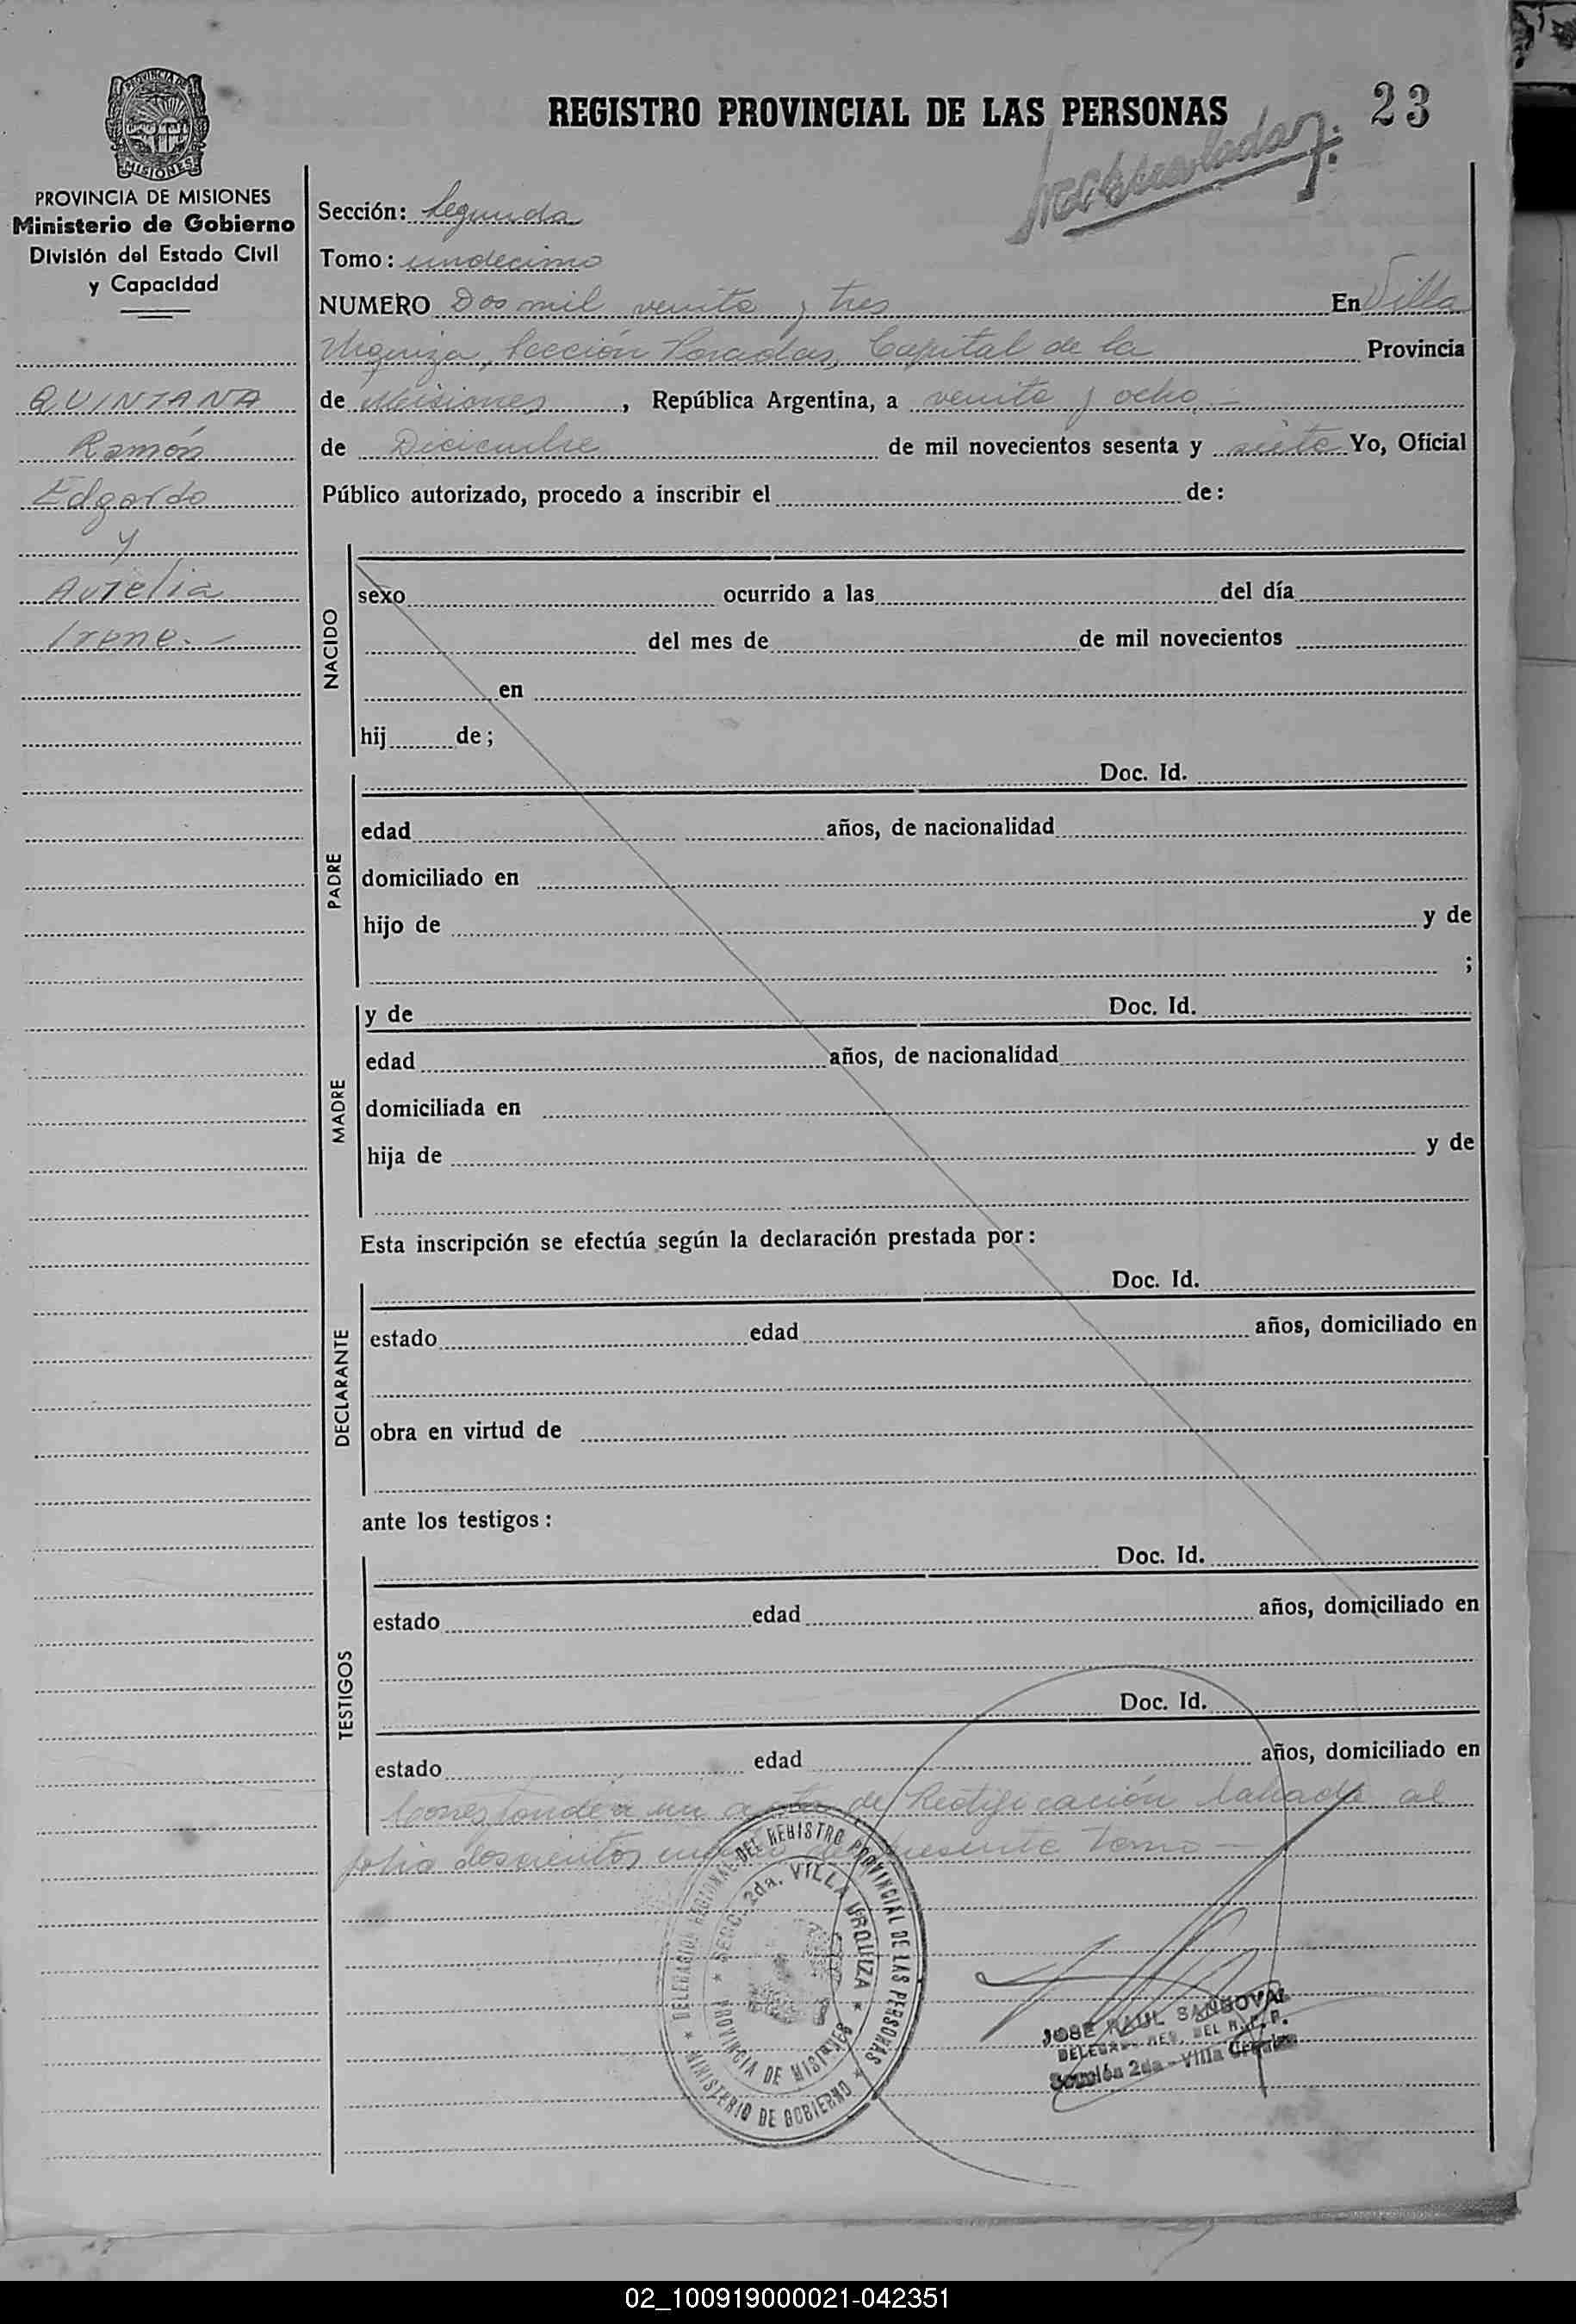 REGISTRO PROVINCIAL DE LAS PERSONAS
23
PROVINCIA DE MISIONES
Ministerio de Gobierno
División del Estado Civil
y Capacidad
QUINTANA
Ramón
Edgardo
y
Aurelia
Irene.-
Sección: Segunda
Tomo: undecimo
NUMERO Dos mil veinte y tres En Villa
Urquiza, Sección Posadas, Capital de la Provincia
de Misiones, República Argentina, a veinte y ocho.-
de Diciembre de mil novecientos sesenta y siete Yo, Oficial
Público autorizado, procedo a inscribir el de:
NACIDO
sexo ocurrido a las del día
del mes de de mil novecientos
en
hij de;
PADRE
Doc. Id.
edad años, de nacionalidad
domiciliado en
hijo de y de
;
MADRE
y de Doc. Id.
edad años, de nacionalidad
domiciliada en
hija de y de
Esta inscripción se efectúa según la declaración prestada por:
DECLARANTE
Doc. Id.
estado edad años, domiciliado en
obra en virtud de
ante los testigos:
TESTIGOS
Doc. Id.
estado edad años, domiciliado en
Doc. Id.
estado edad años, domiciliado en
un acta de Rectificación labrada al
folio doscientos presente tomo -
DELEGACION REGIONAL DEL REGISTRO PROVINCIAL DE LAS PERSONAS
SECC. 2da. VILLA URQUIZA
PROVINCIA DE MISIONES
MINISTERIO DE GOBIERNO
JOSE RAUL SANDOVAL
DELEGADO REG. DEL R.P.P.
Sección 2da - Villa Urquiza
02_100919000021-042351